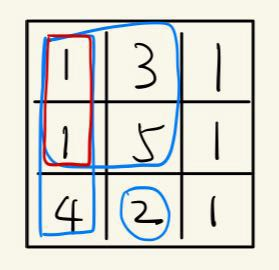 1 3 1
1 5 1
4 2 1